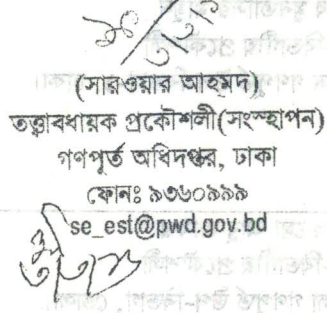 (সারওয়ার আহমদ)
তত্ত্বাবধায়ক প্রকৌশলী(সংস্হাপন)
গণপূর্ত অধিদপ্তর, ঢাকা
ফোনঃ ৯৩৬০৯৯৯
se_est@pwd.gov.bd